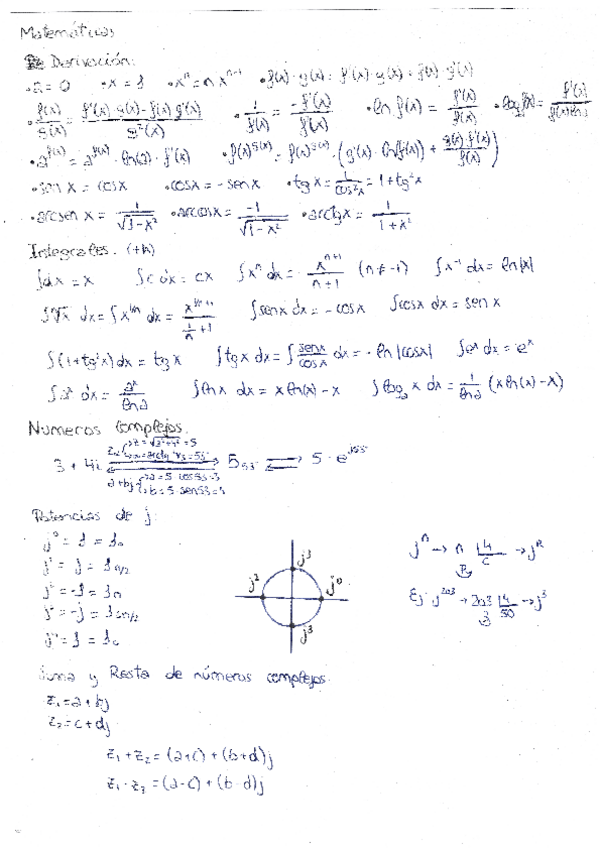 Matemáticas
Derivación:
•a = 0 •x = 1 •xⁿ = n xⁿ⁻¹ •f(x)·g(x) = f'(x)·g(x) + f(x)·g'(x)
•f(x)/g(x) = f'(x)·g(x) - f(x)·g'(x)/g²(x) •1/f(x) = -f'(x)/f²(x) •ln f(x) = f'(x)/f(x)
•a^f(x) = a^f(x)·ln(a)·f'(x) •f(x)^g(x) = f(x)^g(x)·(g'(x)·ln f(x) + g(x)·f'(x)/f(x))
•sen x = cos x •cos x = -sen x •tg x = 1/cos²x = 1+tg²x
•arcsen x = 1/√(1-x²) •arccos x = -1/√(1-x²) •arctg x = 1/(1+x²)
Integrales. (+k)
∫dx = x ∫c dx = cx ∫xⁿ dx = xⁿ⁺¹/n+1 (n≠-1) ∫x⁻¹ dx = ln|x|
∫ⁿ√x dx = ∫x^1/n dx = x^(1/n+1)/(1/n+1) ∫sen x dx = -cos x ∫cos x dx = sen x
∫(1+tg²x)dx = tg x ∫tg x dx = ∫sen x/cos x dx = -ln|cos x| ∫eˣ dx = eˣ
∫aˣ dx = aˣ/ln a ∫ln x dx = x ln(x) - x ∫logₐ x dx = 1/ln a (x ln(x) - x)
Números Complejos.
3 + 4i 5₅₃ 5·e^j53
a+bj a = 5·cos53 = 3
b = 5·sen53 = 4
Potencias de j:
j⁰ = 1 = 1₀
j¹ = j = 1π/2
j² = -1 = 1π
j³ = -j = 1₃π/2
j⁴ = 1 = 1₀
j³
j² j⁰
j³
jⁿ → n |4 → jᴿ
R c
Ej: j²⁰³ → 203 |4 → j³
3 50
Suma y Resta de números complejos.
z₁ = a+bj
z₂ = c+dj
z₁ + z₂ = (a+c) + (b+d)j
z₁ - z₂ = (a-c) + (b-d)j